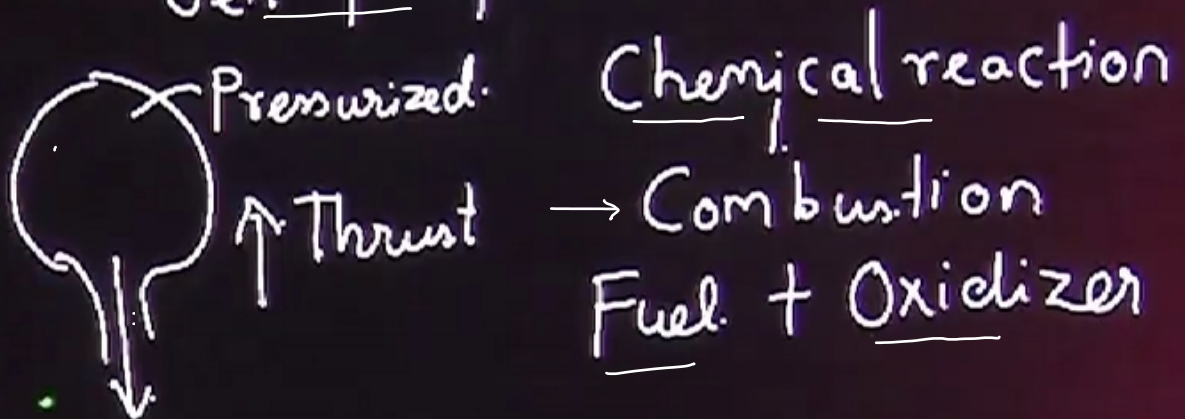 Pressurized.
↑ Thrust
Chemical reaction
→ Combustion
Fuel + Oxidizer